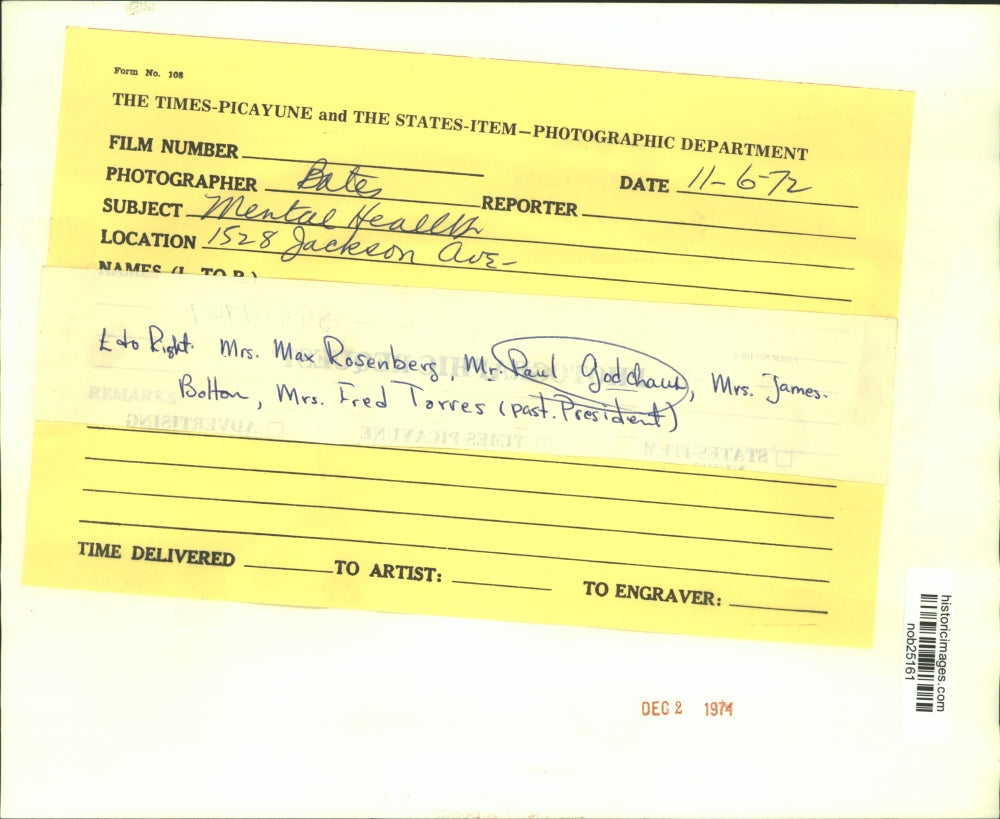 Form No. 108
THE TIMES-PICAYUNE and THE STATES-ITEM—PHOTOGRAPHIC DEPARTMENT
FILM NUMBER
PHOTOGRAPHER Bates DATE 11-6-72
SUBJECT Mental Health REPORTER
LOCATION 1528 Jackson Ave-
NAMES (L. TO R.)
L to Right. Mrs. Max Rosenberg, Mr. Paul Godchaux, Mrs. James.
Bolton, Mrs. Fred Torres (past. President)
REMARKS
ADVERTISING
TIMES PICAYUNE
STATES-ITEM
TIME DELIVERED TO ARTIST: TO ENGRAVER:
historicimages.com
nob25161
DEC 2 1974